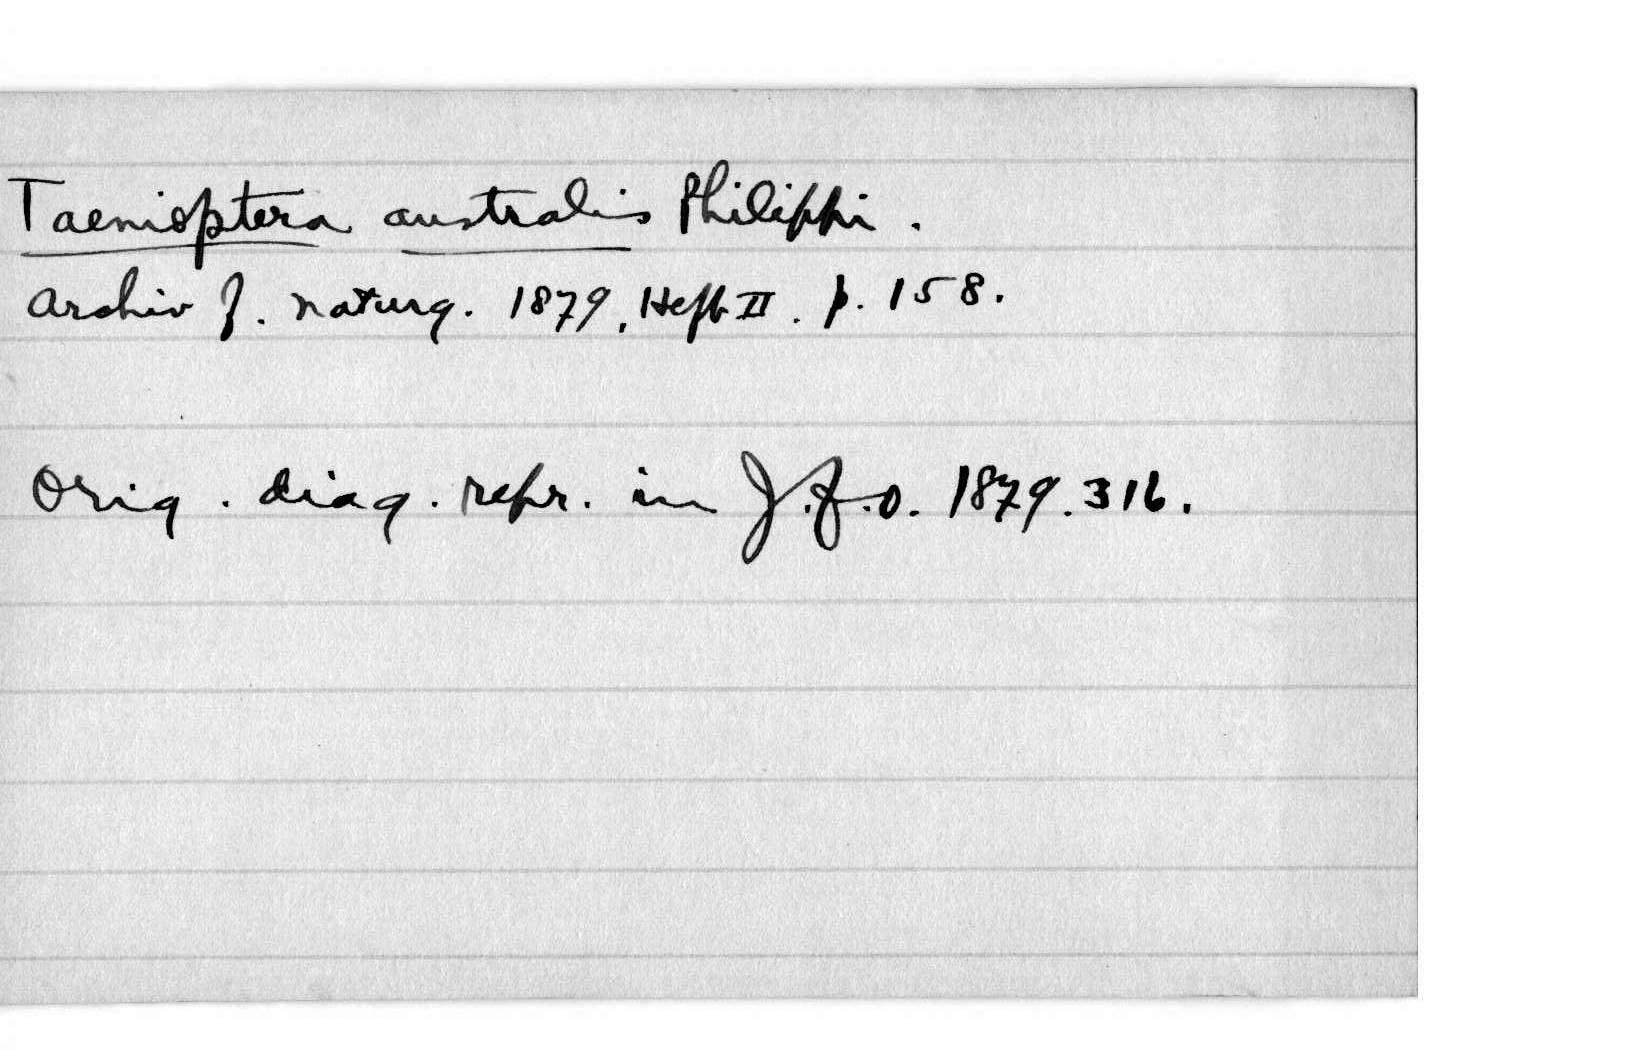 Taenioptera australis Philippi.
Archiv f. Naturg. 1879, Heft II. p. 158.
Orig. diag. repr. in J.f.O. 1879. 316.